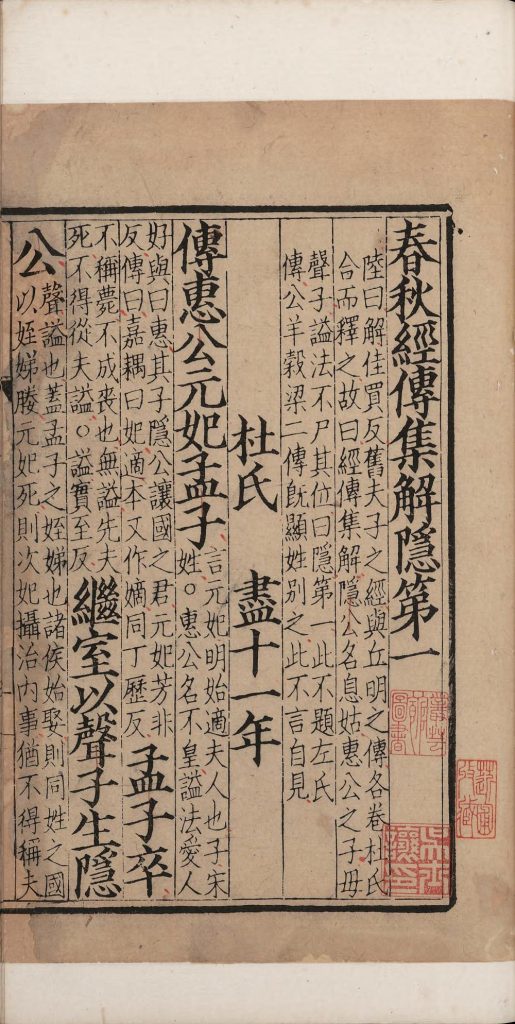 春秋經傳集解隱第一
陸曰解住買反舊夫子之經與丘明之傳各卷杜氏
合而釋之故曰經傳集解隱公名息姑惠公之子母
聲子謚法不尸其位曰隱第一此不題左氏
傳公羊穀梁二傳旣顯姓別之此不言自見
杜氏 盡十一年
傳惠公元妃孟子
言元妃明始適夫人也子宋
姓○惠公名不皇謚法愛人
好與曰惠其子隱公讓國之君元妃芳非
反傳曰嘉耦曰妃適本又作嫡同丁歷反
孟子卒
不稱薨不成喪也無謚先夫
死不得從夫謚○謚實至反
繼室以聲子生隱
公
聲謚也蓋孟子之姪娣也諸侯始娶則同姓之國
以姪娣媵元妃死則次妃攝治內事猶不得稱夫